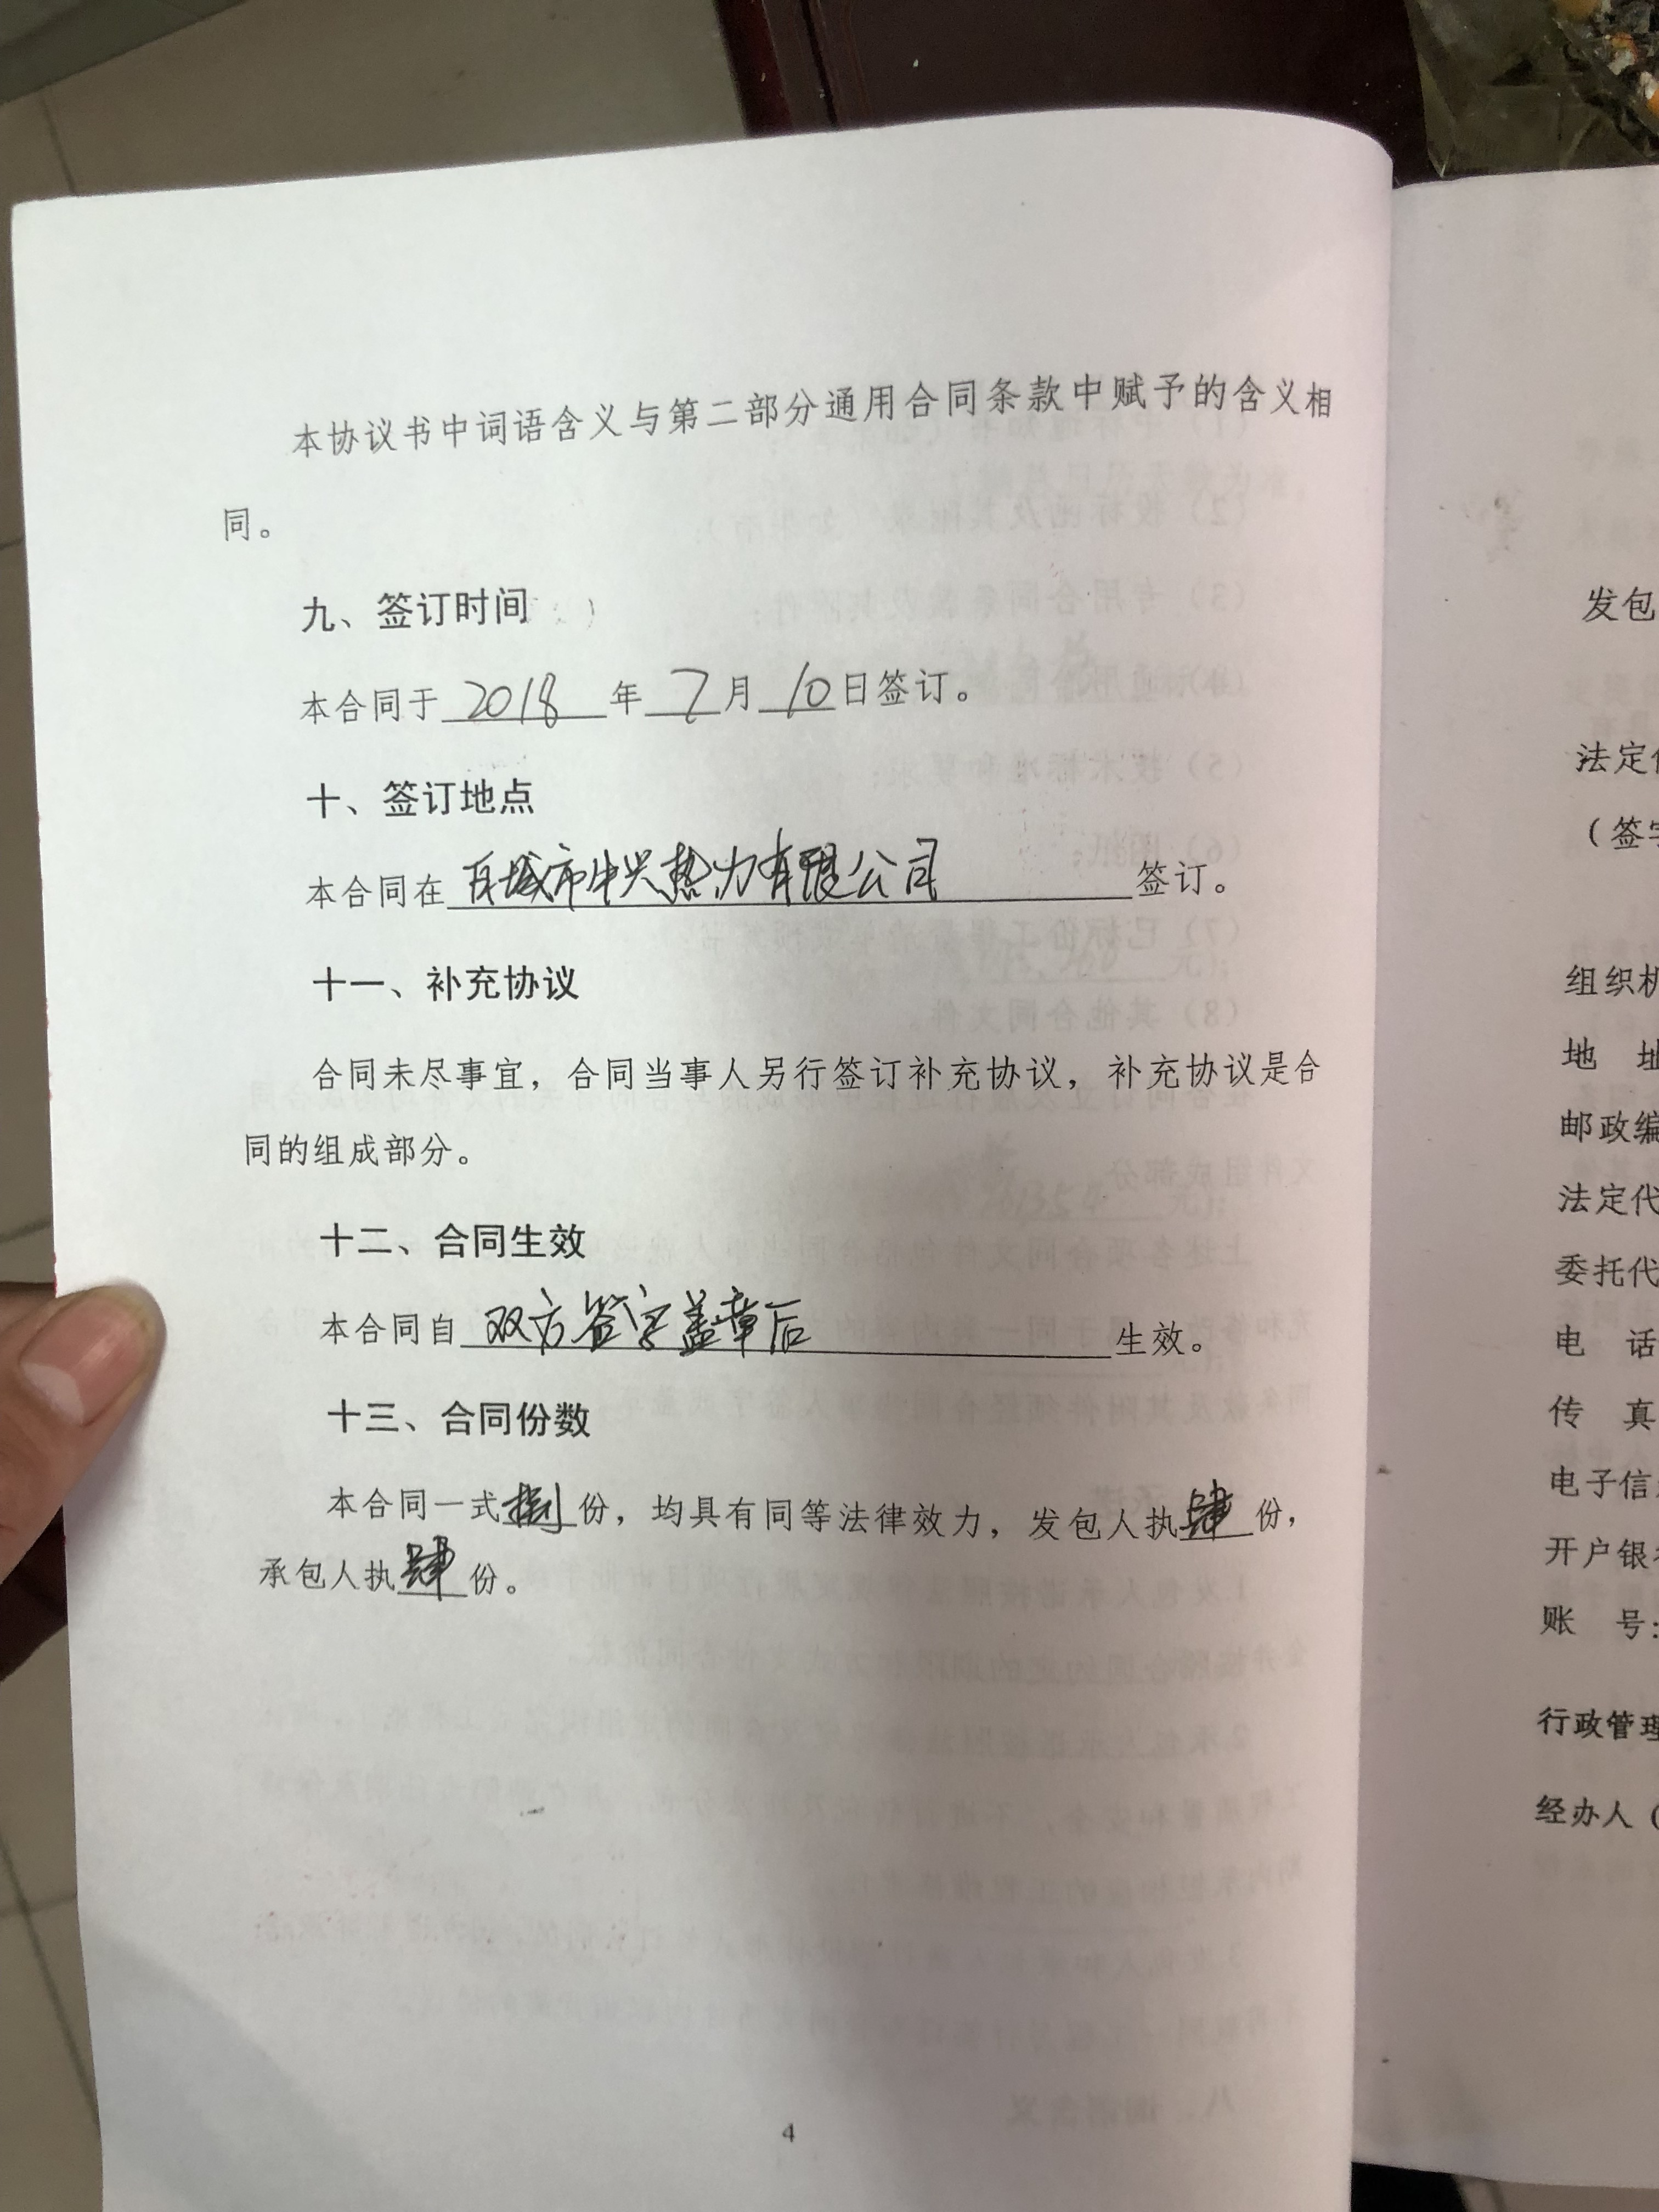 本协议书中词语含义与第二部分通用合同条款中赋予的含义相
同。
九、签订时间
本合同于2018年7月10日签订。
十、签订地点
本合同在白城市中兴热力有限公司签订。
十一、补充协议
合同未尽事宜，合同当事人另行签订补充协议，补充协议是合
同的组成部分。
十二、合同生效
本合同自双方签字盖章后生效。
十三、合同份数
本合同一式捌份，均具有同等法律效力，发包人执肆份，
承包人执肆份。
4
发包
法定
（签字
组织机
地 址
邮政编
法定代
委托代
电 话
传 真
电子信
开户银
账 号：
行政管理
经办人（